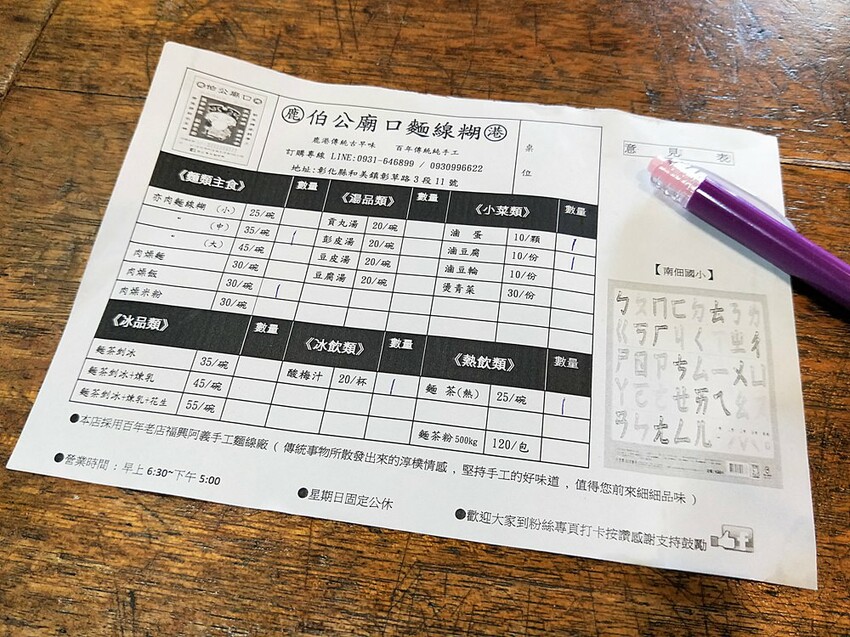 伯公廟口
鹿 伯公廟口麵線糊 港
鹿港傳統古早味 百年傳統純手工
訂購專線 LINE:0931-646899 / 0930996622
地址:彰化縣和美鎮彰草路3段11號
桌
位
意見表
《麵類主食》 數量 《湯品類》 數量 《小菜類》 數量
赤肉麵線糊 (小) 25/碗 貢丸湯 20/碗 滷蛋 10/顆 1
" (中) 35/碗 1 彭皮湯 20/碗 滷豆腐 10/份 1
" (大) 45/碗 豆皮湯 20/碗 滷豆輪 10/份
肉燥麵 30/碗 豆腐湯 20/碗 燙青菜 30/份
肉燥飯 30/碗
肉燥米粉 30/碗 1
《冰品類》 數量 《冰飲類》 數量 《熱飲類》 數量
麵茶剉冰 35/碗 酸梅汁 20/杯 1 麵茶(熱) 25/碗 1
麵茶剉冰+煉乳 45/碗
麵茶剉冰+煉乳+花生 55/碗 麵茶粉500kg 120/包
【南佃國小】
ㄅㄆㄇㄈㄉㄊㄋㄌ
ㄍㄎㄏㄐㄑㄒㄓㄔ
ㄕㄖㄗㄘㄙㄧㄨㄩ
ㄚㄛㄜㄝㄞㄟㄠ
ㄡㄢㄣㄤㄥㄦ
●本店採用百年老店福興阿義手工麵線廠 ( 傳統事物所散發出來的淳樸情感 , 堅持手工的好味道 , 值得您前來細細品味 )
●營業時間 : 早上 6:30~下午 5:00
●星期日固定公休
●歡迎大家到粉絲專頁打卡按讚感謝支持鼓勵